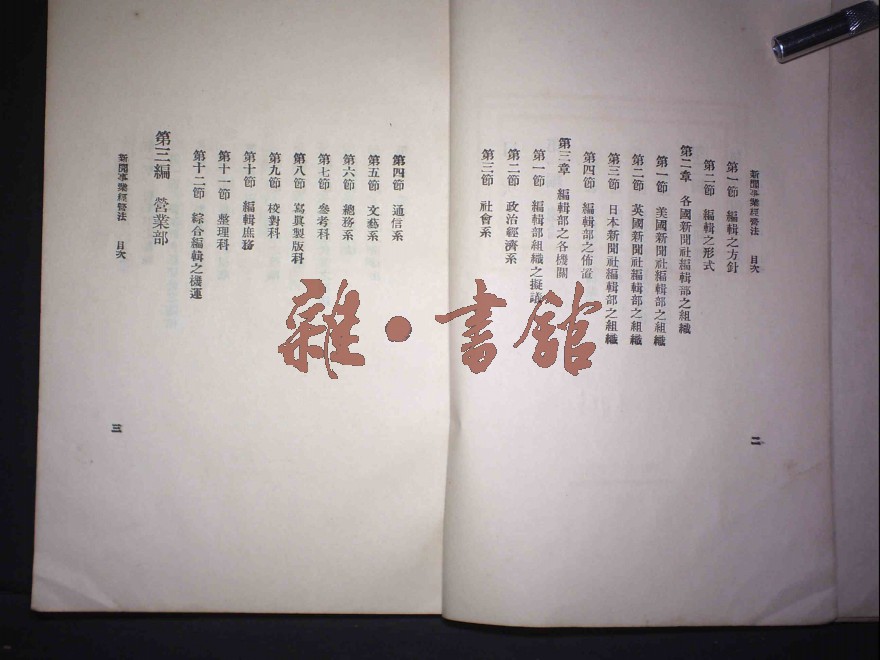 新聞事業經營法　目次
第一節　編輯之方針
第二節　編輯之形式
第二章　各國新聞社編輯部之組織
第一節　美國新聞社編輯部之組織
第二節　英國新聞社編輯部之組織
第三節　日本新聞社編輯部之組織
第四節　編輯部之佈置
第三章　編輯部之各機關
第一節　編輯部組織之擬議
第二節　政治經濟系
第三節　社會系
二
第四節　通信系
第五節　文藝系
第六節　總務系
第七節　參考科
第八節　寫眞製版科
第九節　校對科
第十節　編輯庶務
第十一節　整理科
第十二節　綜合編輯之機運
第三編　營業部
新聞事業經營法　目次
三
雜·書館